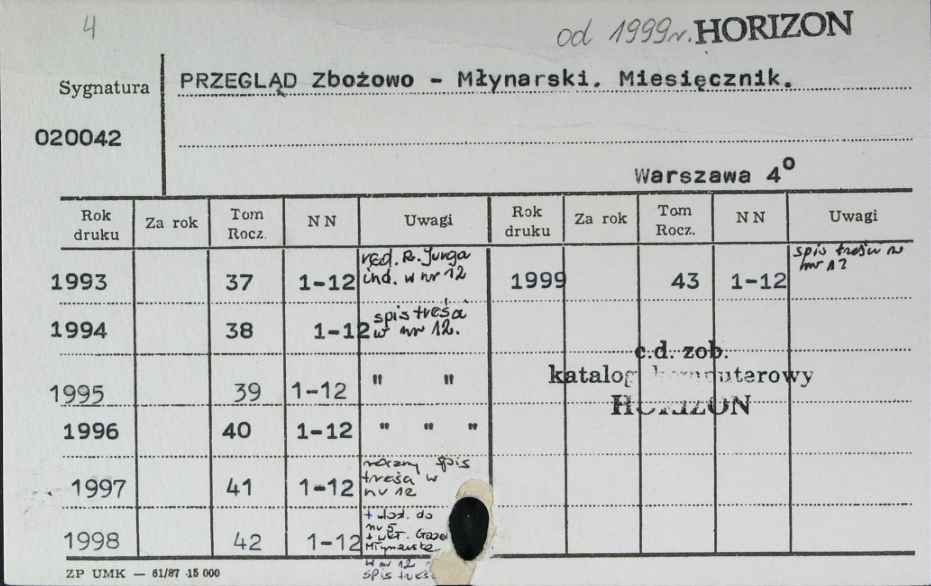 4
od 1999r. HORIZON
Sygnatura PRZEGLĄD Zbożowo - Młynarski. Miesięcznik.
020042
Warszawa 4°
Rok druku Za rok Tom Rocz. NN Uwagi Rok druku Za rok Tom Rocz. NN Uwagi
1993 37 1-12 red. R. Jurga ind. w nr 12 1999 43 1-12 spis treści w nr 12
1994 38 1-12 spis treści w nr 12.
c.d. zob.
katalog komputerowy
HORIZON
1995 39 1-12 " "
1996 40 1-12 " " "
1997 41 1-12 roczny spis treści w nr 12
1998 42 1-12 + dod. do nr 5 + wkł. Młynarska w nr 12 spis
ZP UMK — 61/87 15 000